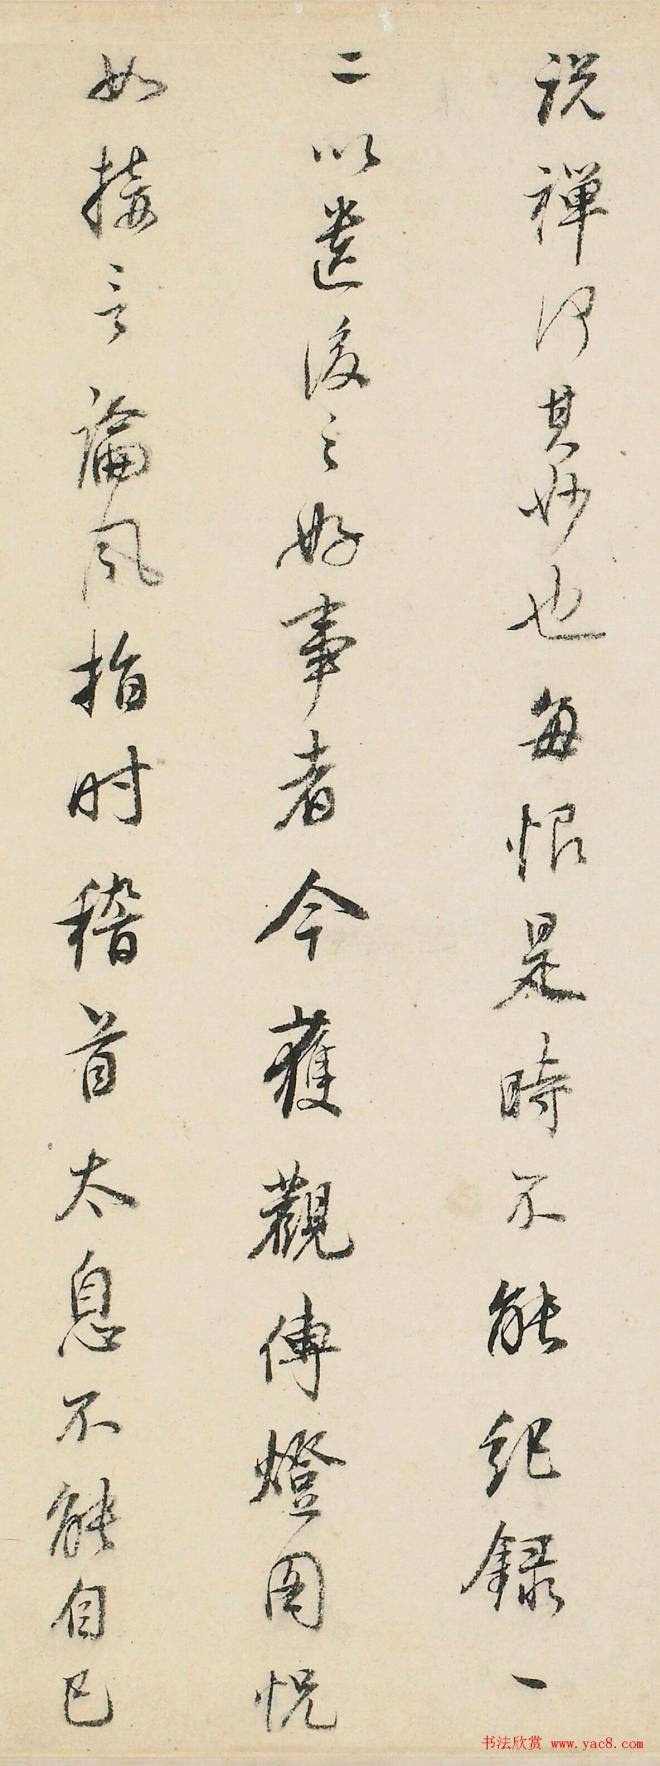 説禪何其妙也每恨是時不能紀録一
二以遺後之好事者今獲觀傳燈圖怳
如接言論風指时稽首太息不能自已
书法欣赏 www.yac8.com